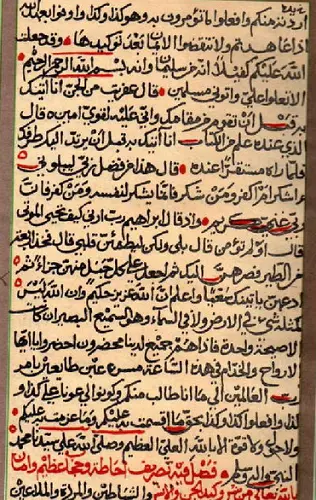 وافعلوا ما تؤمرون به وهو كذا وكذا واوفوا بعهد الله
اذا عاهدتم ولا تنقضوا الايمان بعد توكيدها وقد جعلتم
الله عليكم كفيلا انه من سليمان وانه بسم الله الرحمن الرحيم
الا تعلوا علي واتوني مسلمين قال عفريت من الجن انا اتيك
به قبل ان تقوم من مقامك واني عليه لقوي امين قال
الذي عنده علم من الكتاب انا اتيك به قبل ان يرتد اليك طرفك
فلما راه مستقرا عنده قال هذا من فضل ربي ليبلوني
ءاشكر ام اكفر ومن شكر فانما يشكر لنفسه ومن كفر فان
ربي غني كريم واذ قال ابراهيم رب ارني كيف تحيي الموتى
قال اولم تؤمن قال بلى ولكن ليطمئن قلبي قال فخذ اربعة
من الطير فصرهن اليك ثم اجعل على كل جبل منهن جزءا ثم
ادعهن ياتينك سعيا واعلم ان الله عزيز حكيم وان الله ليس
كمثله شيء في الارض ولا في السماء وهو السميع البصير ان كانت
الا صيحة واحدة فاذا هم جميع لدينا محضرون احضروا يا ايها
الارواح والخدام في هذه الساعة مسرعين طائعين
العالمين الى ما انا طالب منكم وكونوا لي عونا على كذا
وكذا وافعلوا كذا وكذا بحق ما اقسمت به عليكم وما عزمت به عليكم
ولا حول ولا قوة الا بالله العلي العظيم وصلى الله على سيدنا محمد
النبي واله وسلم